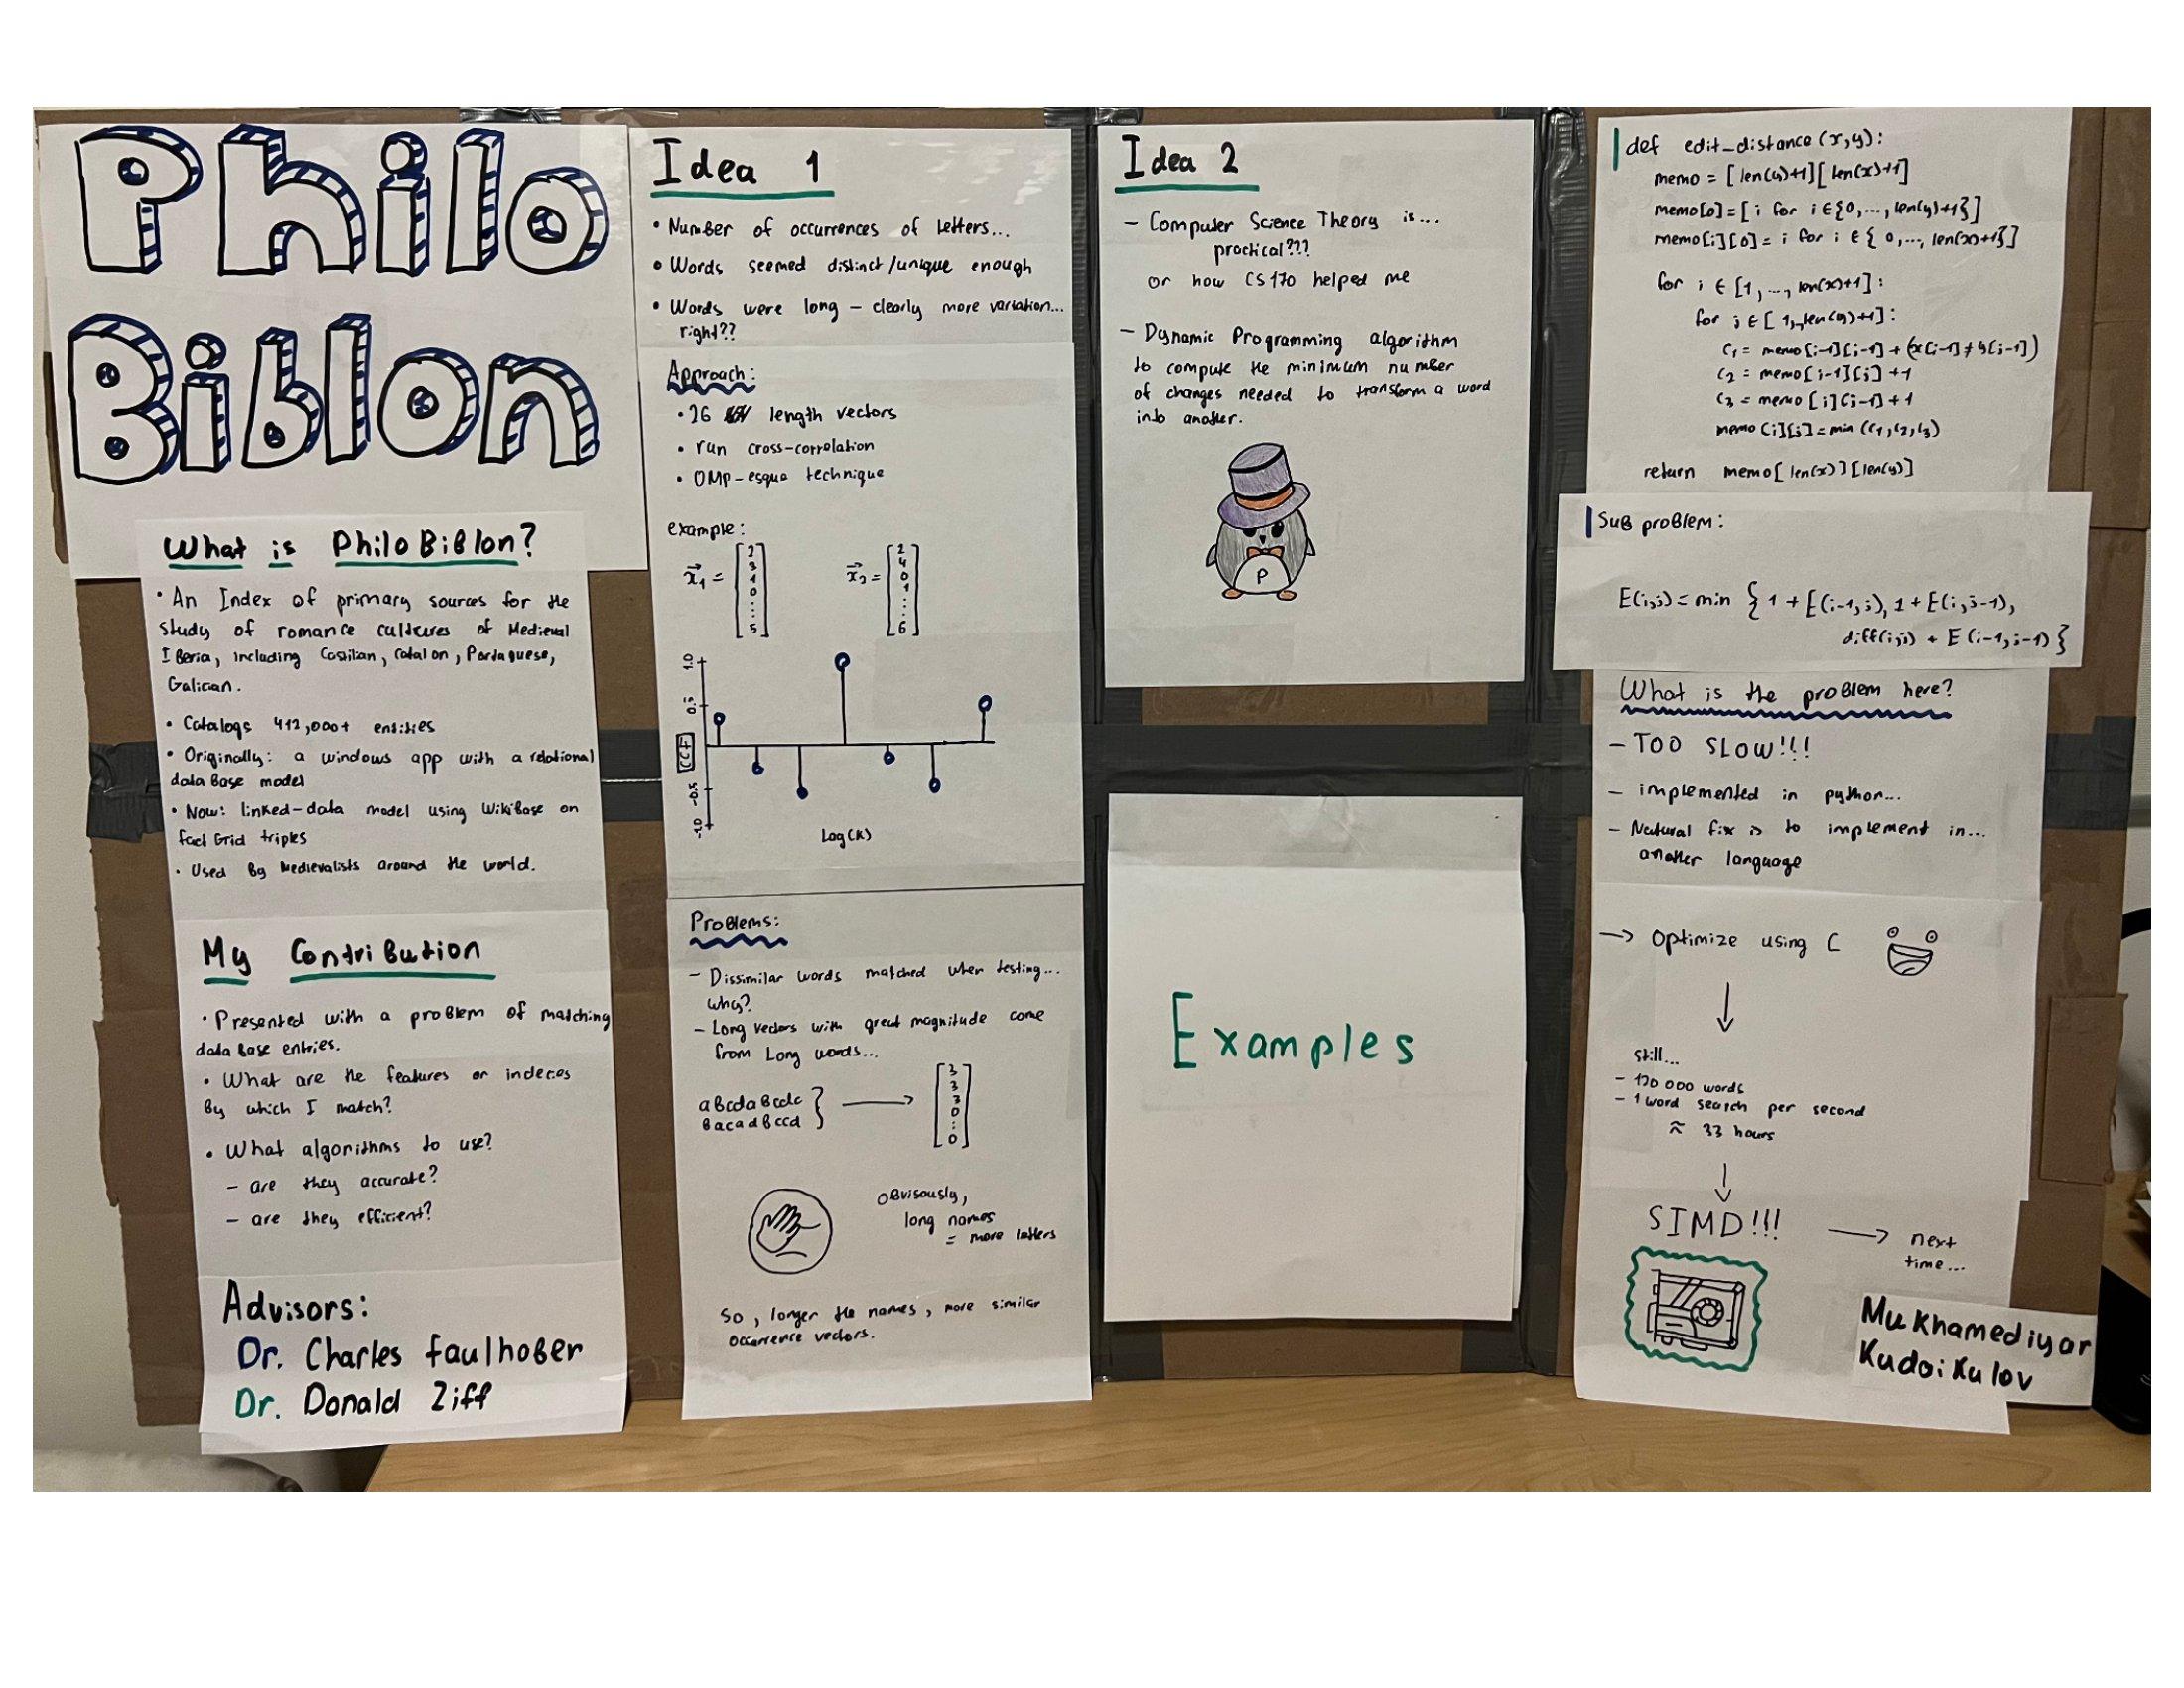 Philo
Biblon
What is PhiloBiblon?
• An Index of primary sources for the
study of romance cultures of Medieval
Iberia, including Castilian, Catalon, Portuguese,
Galician.
• Catalogs 412,000+ entities
• Originally: a windows app with a relational
data base model
• Now: linked-data model using WikiBase on
fact Grid triples
• Used by Medievalists around the world.
My Contribution
• Presented with a problem of matching
data base entries.
• What are the features or indeces
by which I match?
• What algorithms to use?
- are they accurate?
- are they efficient?
Advisors:
Dr. Charles Faulhober
Dr. Donald Ziff
Idea 1
• Number of occurrences of letters...
• Words seemed distinct/unique enough
• Words were long - clearly more variation...
right??
Approach:
• 26 length vectors
• run cross-correlation
• OMP-esque technique
example:
x₁ = [2 3 1 0 ⋮ 5] x₂ = [2 4 0 1 ⋮ 6]
1.0
0.5
CCF
-0.5
-1.0
Lag(K)
Problems:
- Dissimilar words matched when testing...
why?
- Long vectors with great magnitude come
from Long words...
abcdabcdc
bacadbccd } → [3 3 3 0 ⋮ 0]
Obvisously,
long names
= more letters
So, longer the names, more similar
occurrence vectors.
Idea 2
- Computer Science Theory is...
practical???
or how CS170 helped me
- Dynamic Programming algorithm
to compute the minimum number
of changes needed to transform a word
into another.
P
Examples
def edit_distance (x,y):
memo = [len(y)+1][len(x)+1]
memo[0]=[i for i∈{0,...,len(y)+1}]
memo[i][0]= i for i ∈ {0,..., len(x)+1}]
for i ∈ [1,..., len(x)+1]:
for j ∈ [1,..,len(y)+1]:
c₁ = memo[i-1][j-1] + (x[i-1]≠y[j-1])
c₂ = memo[i-1][j] +1
c₃ = memo[i][j-1] + 1
memo[i][j]=min(c₁,c₂,c₃)
return memo[len(x)][len(y)]
Sub problem:
E(i,j)= min {1 + E(i-1,j), 1 + E(i,j-1),
diff(i,j) + E(i-1,j-1)}
What is the problem here?
- TOO SLOW!!!
- implemented in python...
- Natural fix is to implement in...
another language
→ Optimize using C
still...
- 120 000 words
- 1 word search per second
≈ 33 hours
SIMD!!! → next
time...
Mukhamediyar
Kudaikulov